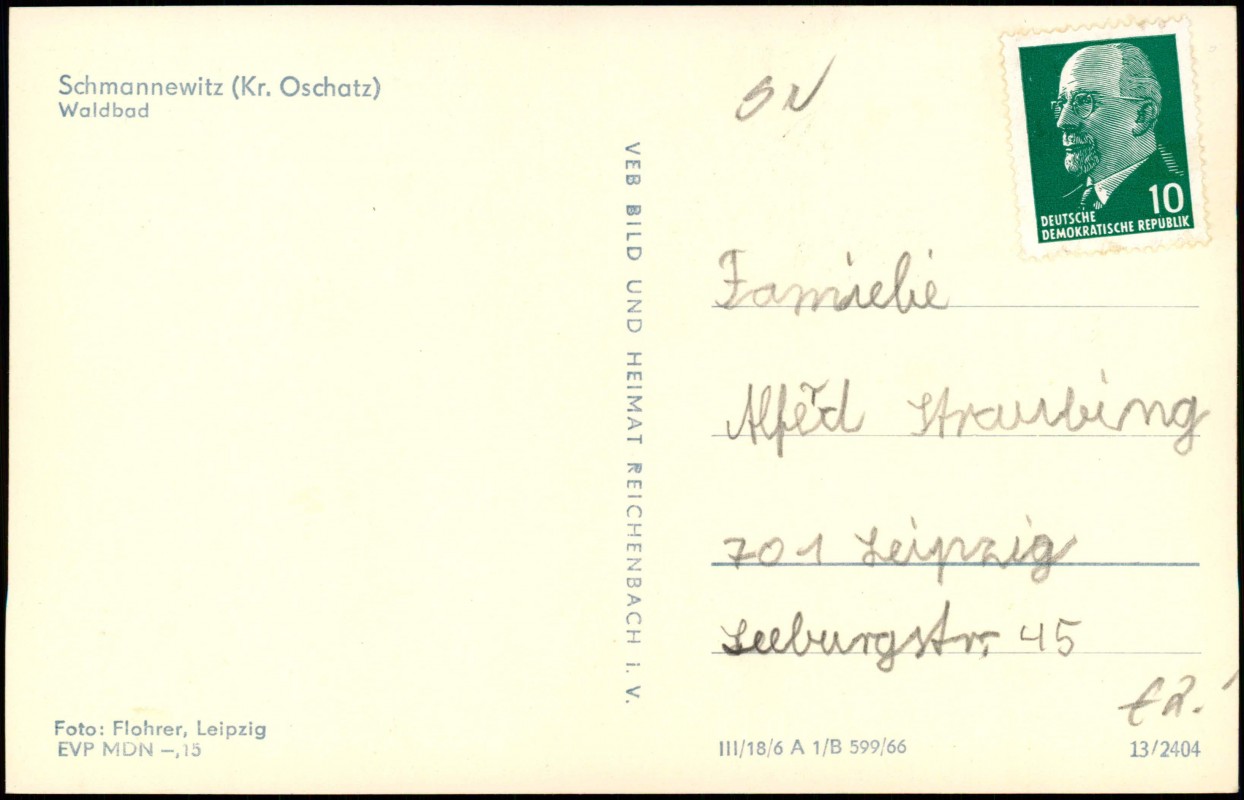 Schmannewitz (Kr. Oschatz)
Waldbad
Foto: Flohrer, Leipzig
EVP MDN –,15
VEB BILD UND HEIMAT REICHENBACH i. V.
10
DEUTSCHE
DEMOKRATISCHE REPUBLIK
Familie
Alferd Straubing
701 Leipzig
Seeburgstr. 45
III/18/6 A 1/B 599/66
13/2404